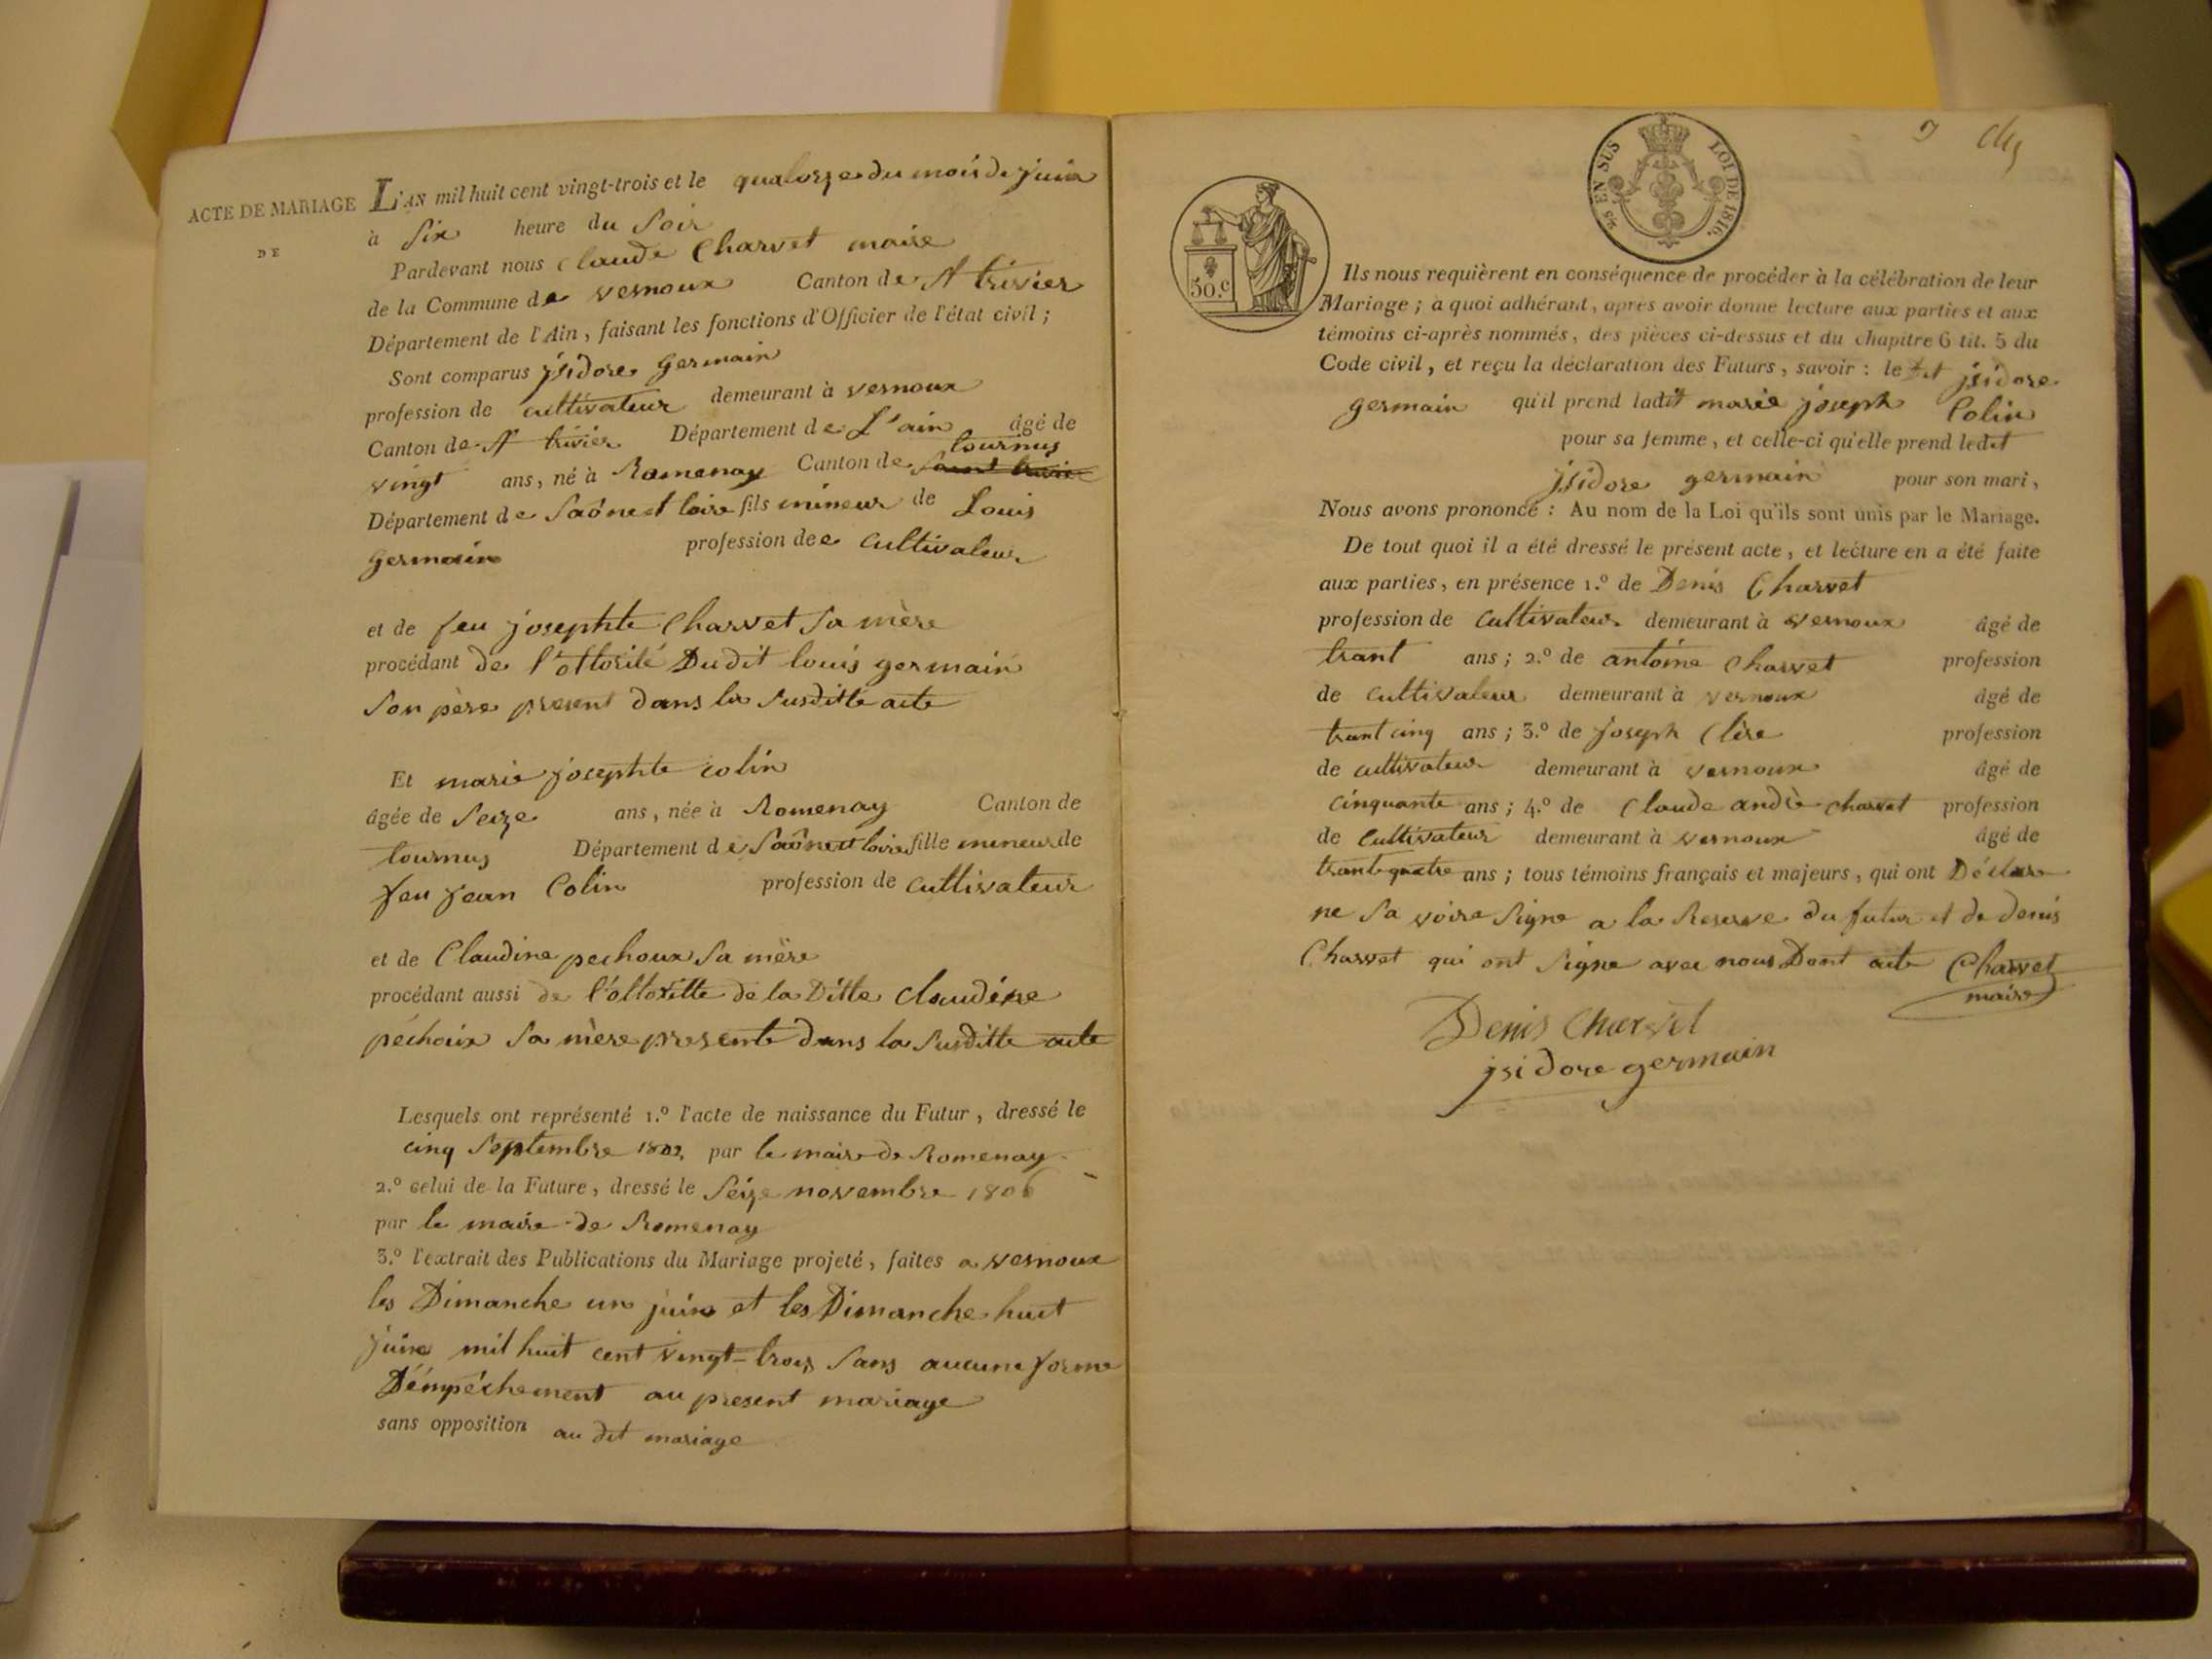 ACTE DE MARIAGE
DE
L'AN mil huit cent vingt-trois et le quatorze du mois de juin
à Six heure du Soir
Pardevant nous Claude Charvet maire
de la Commune de vernoux Canton de St trivier
Département de l'Ain, faisant les fonctions d'Officier de l'état civil;
Sont comparus jsidore germain
profession de cultivateur demeurant à vernoux
Canton de St trivier Département de L'ain âgé de
tournus
vingt ans, né à Romenay Canton de
Département de Saône et loire fils mineur de Louis
germain profession de cultivateur
et de feu josephte Charvet Sa mère
procédant de l'ottorité Dudit louis germain
Son père present dans la Susditte acte
Et marie josephte colin
âgée de Seize ans, née à Romenay Canton de
tournus Département de Saône et loire fille mineur de
feu jean Colin profession de cultivateur
et de Claudine pechoux Sa mère
procédant aussi de l'ottoritte de la Ditte claudine
pechoux Sa mère presente dans la Susditte acte
Lesquels ont représenté 1.º l'acte de naissance du Futur, dressé le
cinq Septembre 1802 par le maire de Romenay
2.º celui de la Future, dressé le Seize novembre 1806
par le maire de Romenay
3.º l'extrait des Publications du Mariage projeté, faites a vernoux
les Dimanche un juin et les Dimanche huit
juin mil huit cent vingt-trois Sans aucune forme
Démpéchement au present mariage
sans opposition au dit mariage
45 EN SUS LOI DE 1816.
50.c
Ils nous requièrent en conséquence de procéder à la célébration de leur
Mariage; à quoi adhérant, après avoir donné lecture aux parties et aux
témoins ci-après nommés, des pièces ci-dessus et du chapitre 6 tit. 5 du
Code civil, et reçu la déclaration des Futurs, savoir: le dit jsidore
germain qu'il prend ladit marie joseph Colin
pour sa femme, et celle-ci qu'elle prend ledit
jsidore germain pour son mari,
Nous avons prononcé: Au nom de la Loi qu'ils sont unis par le Mariage.
De tout quoi il a été dressé le présent acte, et lecture en a été faite
aux parties, en présence 1.º de Denis Charvet
profession de Cultivateur demeurant à vernoux âgé de
trant ans; 2.º de antoine Charvet profession
de cultivateur demeurant à vernoux âgé de
trant cinq ans; 3.º de joseph Clère profession
de cultivateur demeurant à vernoux âgé de
cinquante ans; 4.º de Claude andrè charvet profession
de Cultivateur demeurant à vernoux âgé de
trant quatre ans; tous témoins français et majeurs, qui ont Déclare
ne Sa voire Signe a la Reserve du futur et de denis
Charvet qui ont Signe avec nous Dont acte Charvet
maire
Denis Charvet
jsidore germain